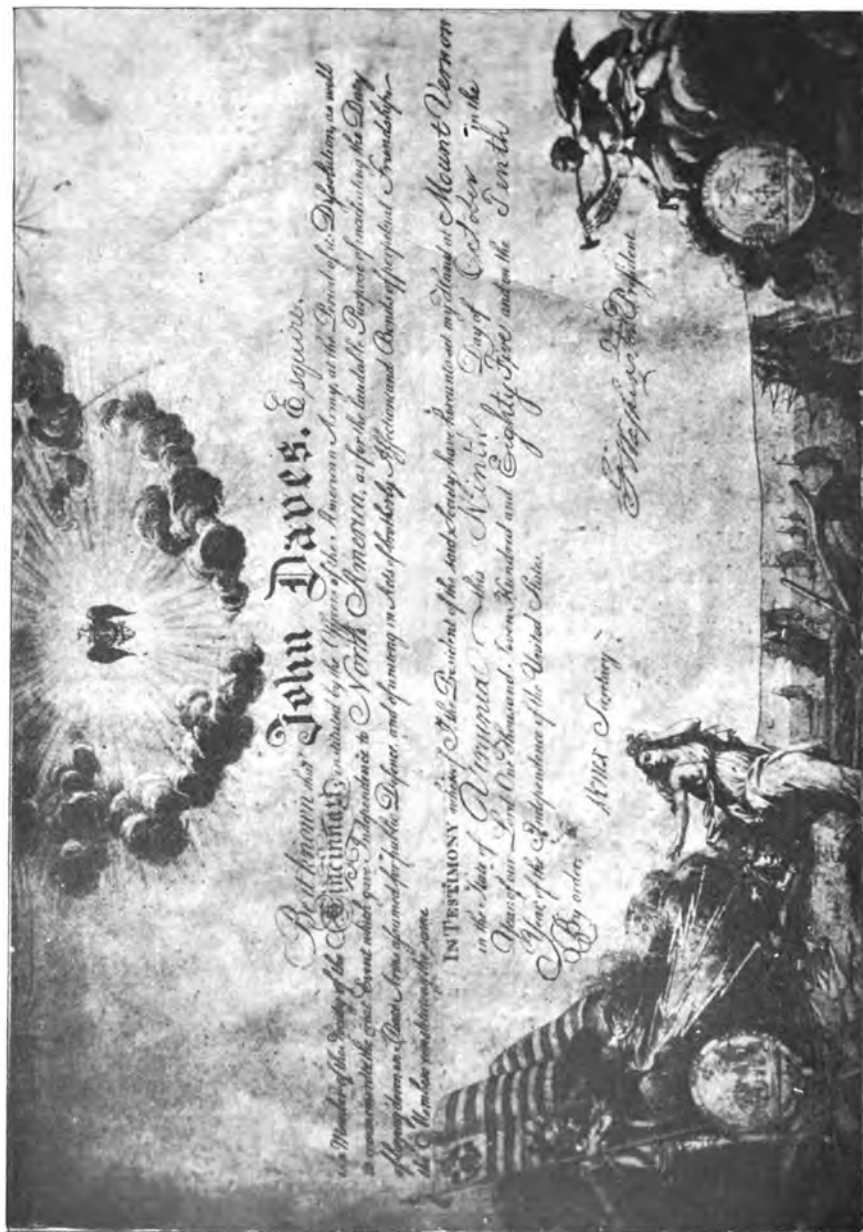 Be it known that John Daves. Esquire.
is a Member of the Society of the Cincinnati; instituted by the Officers of the American Army, at the Period of its Dissolution, as well
to commemorate the great Event which gave Independence to North America, as for the laudable Purpose of inculcating the Duty
of laying down in Peace Arms assumed for public Defence, and of uniting in Acts of brotherly Affection and Bonds of perpetual Friendship
the Members constituting the same.
IN TESTIMONY whereof I, the President of the said Society, have hereunto set my Hand at Mount Vernon
in the State of Virginia this Ninth Day of October in the
Year of our Lord One Thousand Seven Hundred and Eighty Five and in the Tenth
Year of the Independence of the United States.
By order.
Knox Secretary.
G Washington President.